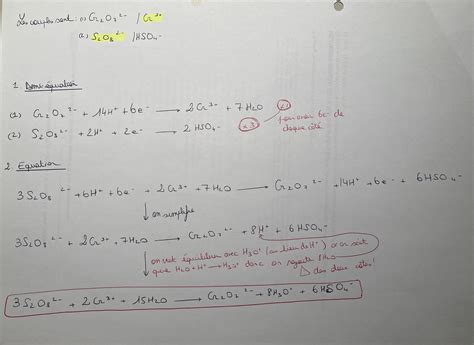 Les couples sont : 1) Cr₂O₇²⁻ / Cr³⁺
2) S₂O₈²⁻ / HSO₄⁻
1. Demi-équation
(1) Cr₂O₇²⁻ + 14H⁺ + 6e⁻ → 2Cr³⁺ + 7H₂O (x1)
(2) S₂O₈²⁻ + 2H⁺ + 2e⁻ → 2 HSO₄⁻ (x3)
pour avoir 6e⁻ de
chaque côté
2. Equation
3S₂O₈²⁻ + 6H⁺ + 6e⁻ + 2Cr³⁺ + 7H₂O → Cr₂O₇²⁻ + 14H⁺ + 6e⁻ + 6HSO₄⁻
↓ on simplifie
3S₂O₈²⁻ + 2Cr³⁺ + 7H₂O → Cr₂O₇²⁻ + 8H⁺ + 6HSO₄⁻
on veut équilibrer avec H₃O⁺ (au lieu de H⁺) or on sait
que H₂O + H⁺ → H₃O⁺ donc on rajoute 8H₂O
des deux côtés !
3S₂O₈²⁻ + 2Cr³⁺ + 15H₂O → Cr₂O₇²⁻ + 8H₃O⁺ + 6HSO₄⁻